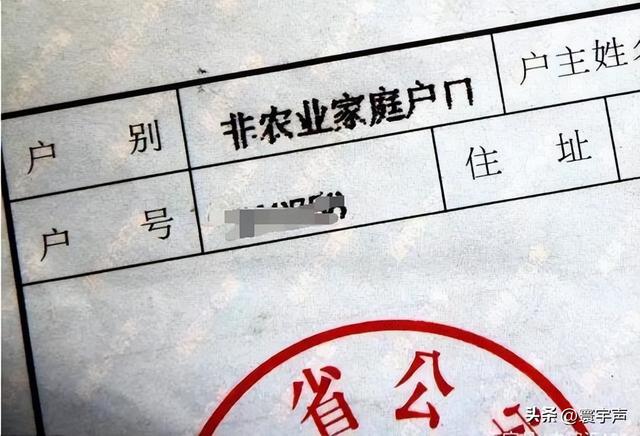 户别 非农业家庭户口 户主姓名
户号 住址
省公
头条 @寰宇声